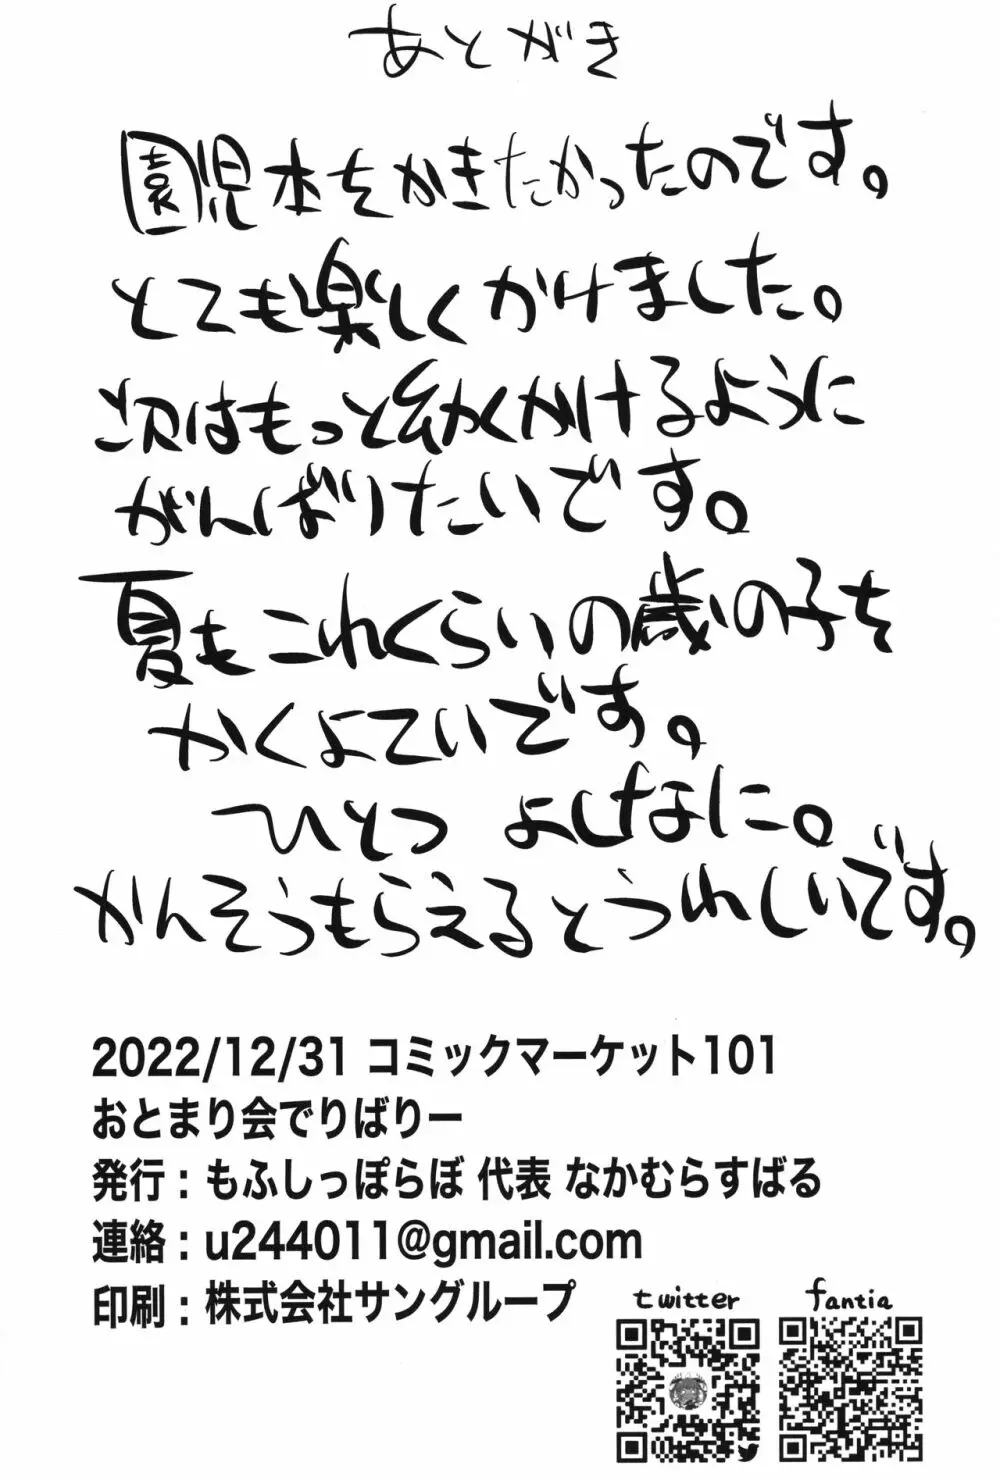 あとがき
園児本をかきたかったのです。
とても楽しくかけました。
次はもっと幼くかけるように
がんばりたいです。
夏もこれくらいの歳の子を
かくよていです。
ひとつ よしなに。
かんそうもらえるとうれしいです。
2022/12/31 コミックマーケット101
おとまり会でりばりー
発行：もふしっぽらぼ 代表 なかむらすばる
連絡：u244011@gmail.com
印刷：株式会社サングループ
twitter
fantia